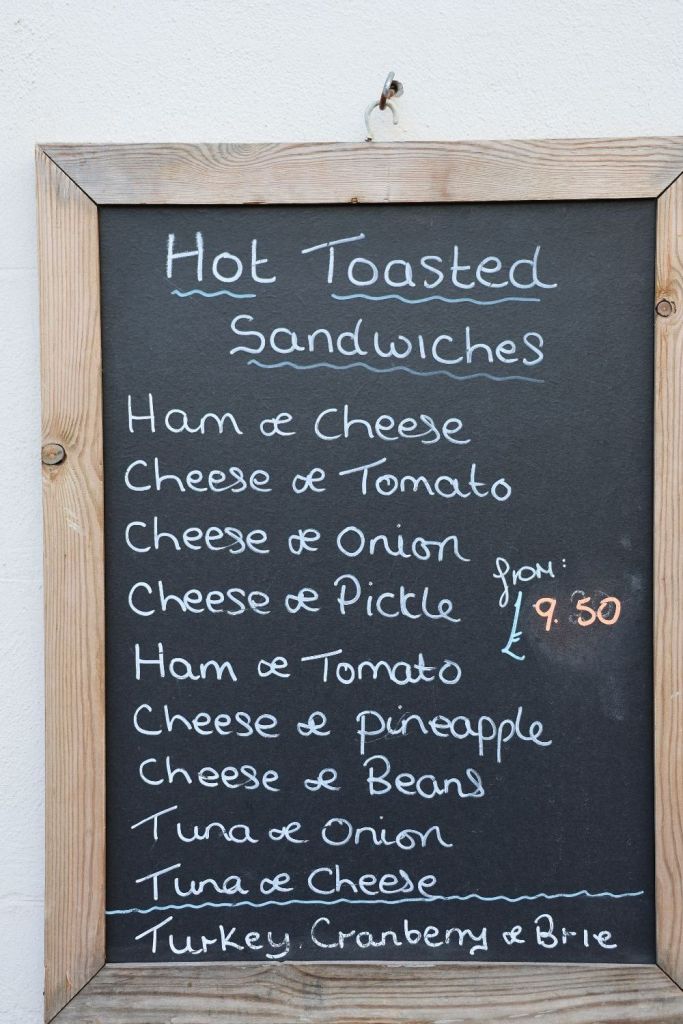 Hot Toasted
Sandwiches
Ham & Cheese
Cheese & Tomato
Cheese & Onion
Cheese & Pickle
from:
£9.50
Ham & Tomato
Cheese & pineapple
Cheese & Beans
Tuna & Onion
Tuna & Cheese
Turkey Cranberry & Brie